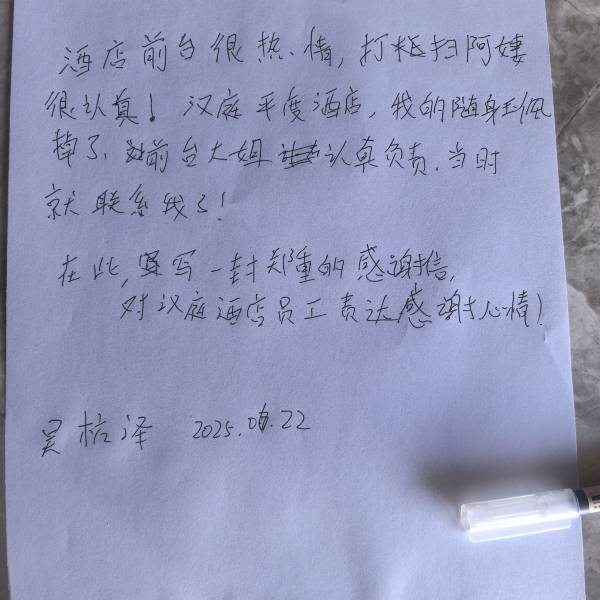 酒店前台很热情，打扫阿姨
很认真！汉庭平度酒店，我的随身玉佩
掉了、前台大姐认真负责.当时
就联系我了！
在此，写一封郑重的感谢信,
对汉庭酒店员工表达感谢心情！
吴杭泽 2025.01.22